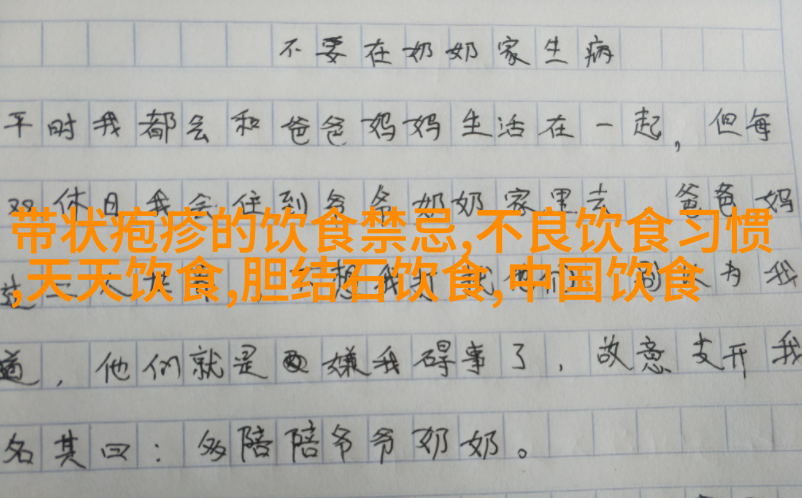 不要在奶奶家生病
平时我都会和爸爸妈妈生活在一起，但每
双休日我会住到爷爷奶奶家里去 爸爸妈
带状疱疹的饮食禁忌,不良饮食习惯
,天天饮食,胆结石饮食,中国饮食
为我
道，他们就是嫌我碍事了，故意支开我
名其曰：多陪陪爷爷奶奶。